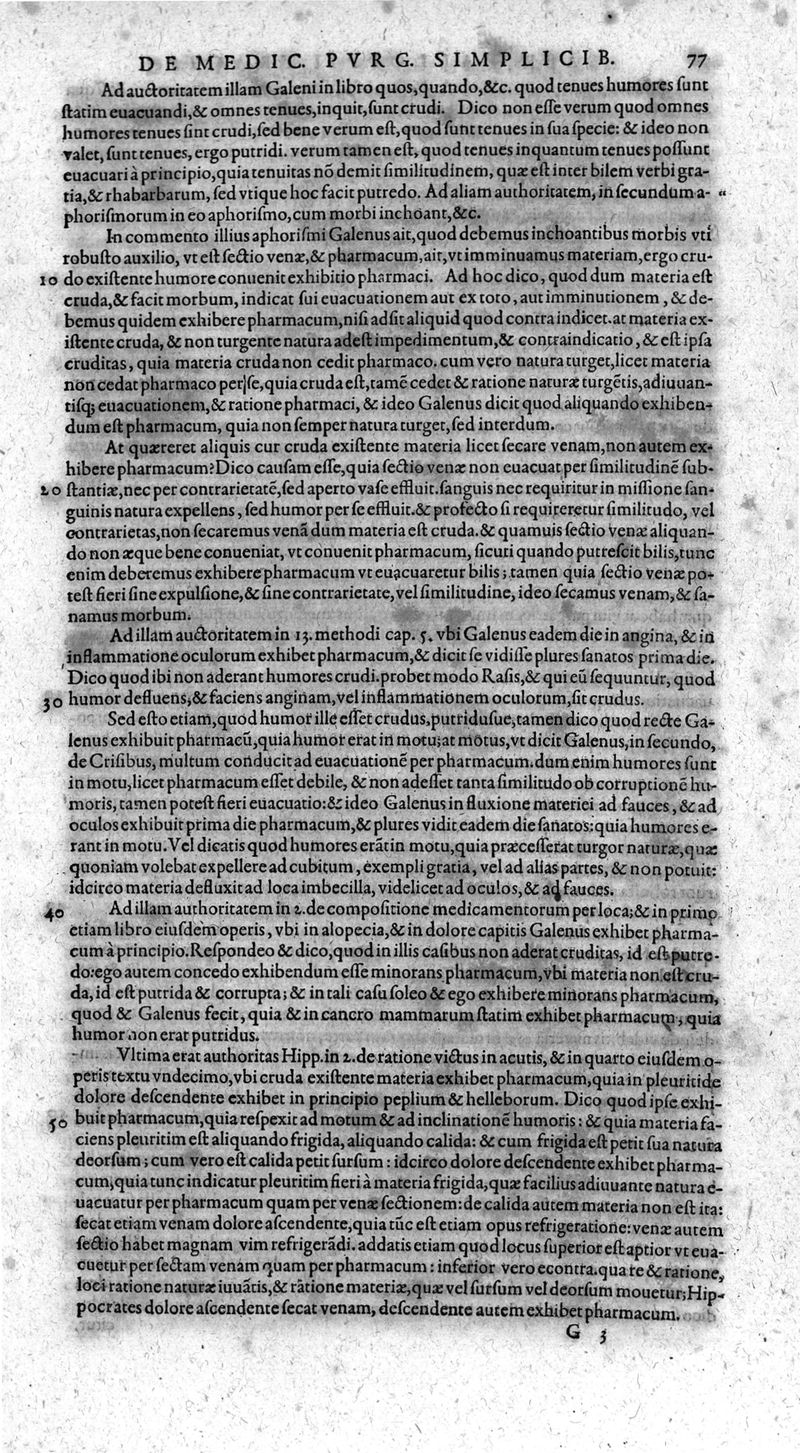 DE MEDIC. PVRG. SIMPLICIB. 77
Ad auctoritatem illam Galeni in libro quos, quando, &c. quod tenues humores ſunt
ſtatim euacuandi, & omnes tenues, inquit, ſunt crudi. Dico non eſſe verum quod omnes
humores tenues ſint crudi, ſed bene verum eſt, quod ſunt tenues in ſua ſpecie: & ideo non
valet, ſunt tenues, ergo putridi. verum tamen eſt, quod tenues inquantum tenues poſſunt
euacuari à principio, quia tenuitas nõ demit ſimilitudinem, quæ eſt inter bilem verbi gra-
tia, & rhabarbarum, ſed vtique hoc facit putredo. Ad aliam authoritatem, in ſecundum a- “
phoriſmorum in eo aphoriſmo, cum morbi inchoant, &c.
In commento illius aphoriſmi Galenus ait, quod debemus inchoantibus morbis vti
robuſto auxilio, vt eſt ſectio venæ, & pharmacum, ait, vt imminuamus materiam, ergo cru-
10 do exiſtente humore conuenit exhibitio pharmaci. Ad hoc dico, quod dum materia eſt
cruda, & facit morbum, indicat ſui euacuationem aut ex toto, aut imminutionem, & de-
bemus quidem exhibere pharmacum, niſi adſit aliquid quod contraindicet. at materia ex-
iſtente cruda, & non turgente natura adeſt impedimentum, & contraindicatio, & eſt ipſa
cruditas, quia materia cruda non cedit pharmaco. cum vero natura turget, licet materia
non cedat pharmaco per ſe, quia cruda eſt, tamẽ cedet & ratione naturæ turgẽtis, adiuuan-
tiſq; euacuationem, & ratione pharmaci, & ideo Galenus dicit quod aliquando exhiben-
dum eſt pharmacum, quia non ſemper natura turget, ſed interdum.
At quæreret aliquis cur cruda exiſtente materia licet ſecare venam, non autem ex-
hibere pharmacum? Dico cauſam eſſe, quia ſectio venæ non euacuat per ſimilitudinẽ ſub-
20 ſtantiæ, nec per contrarietatẽ, ſed aperto vaſe effluit. ſanguis nec requiritur in miſſione ſan-
guinis natura expellens, ſed humor per ſe effluit. & profecto ſi requireretur ſimilitudo, vel
contrarietas, non ſecaremus venã dum materia eſt cruda. & quamuis ſectio venæ aliquan-
do non æque bene conueniat, vt conuenit pharmacum, ſicuti quando putreſcit bilis, tunc
enim deberemus exhibere pharmacum vt euacuaretur bilis; tamen quia ſectio venæ po-
teſt fieri ſine expulſione, & ſine contrarietate, vel ſimilitudine, ideo ſecamus venam, & ſa-
namus morbum.
Ad illam auctoritatem in 13. methodi cap. 5. vbi Galenus eadem die in angina, & in
inflammatione oculorum exhibet pharmacum, & dicit ſe vidiſſe plures ſanatos prima die.
Dico quod ibi non aderant humores crudi. probet modo Raſis, & qui eũ ſequuntur, quod
30 humor defluens, & faciens anginam, vel inflammationem oculorum, ſit crudus.
Sed eſto etiam, quod humor ille eſſet crudus, putriduſue, tamen dico quod recte Ga-
lenus exhibuit pharmacũ, quia humor erat in motu; at motus, vt dicit Galenus, in ſecundo,
de Criſibus, multum conducit ad euacuationẽ per pharmacum. dum enim humores ſunt
in motu, licet pharmacum eſſet debile, & non adeſſet tanta ſimilitudo ob corruptionẽ hu-
moris, tamen poteſt fieri euacuatio: & ideo Galenus in fluxione materiei ad fauces, & ad
oculos exhibuit prima die pharmacum, & plures vidit eadem die ſanatos: quia humores e-
rant in motu. Vel dicatis quod humores erãt in motu, quia præceſſerat turgor naturæ, quæ
quoniam volebat expellere ad cubitum, exempli gratia, vel ad alias partes, & non potuit:
idcirco materia defluxit ad loca imbecilla, videlicet ad oculos, & ad fauces.
40 Ad illam authoritatem in 2. de compoſitione medicamentorum per loca; & in primo
etiam libro eiuſdem operis, vbi in alopecia, & in dolore capitis Galenus exhibet pharma-
cum à principio. Reſpondeo & dico, quod in illis caſibus non aderat cruditas, id eſt putre-
do: ego autem concedo exhibendum eſſe minorans pharmacum, vbi materia non eſt cru-
da, id eſt putrida & corrupta; & in tali caſu ſoleo & ego exhibere minorans pharmacum,
quod & Galenus fecit, quia & in cancro mammarum ſtatim exhibet pharmacum, quia
humor non erat putridus.
Vltima erat authoritas Hipp. in 2. de ratione victus in acutis, & in quarto eiuſdem o-
peris textu vndecimo, vbi cruda exiſtente materia exhibet pharmacum, quia in pleuritide
dolore deſcendente exhibet in principio peplium & helleborum. Dico quod ipſe exhi-
50 buit pharmacum, quia reſpexit ad motum & ad inclinationẽ humoris: & quia materia fa-
ciens pleuritim eſt aliquando frigida, aliquando calida: & cum frigida eſt petit ſua natura
deorſum; cum vero eſt calida petit ſurſum: idcirco dolore deſcendente exhibet pharma-
cum, quia tunc indicatur pleuritim fieri à materia frigida, quæ facilius adiuuante natura e-
uacuatur per pharmacum quam per venæ ſectionem: de calida autem materia non eſt ita:
ſecat etiam venam dolore aſcendente, quia tũc eſt etiam opus refrigeratione: venæ autem
ſectio habet magnam vim refrigerãdi. addatis etiam quod locus ſuperior eſt aptior vt eua-
cuetur per ſectam venam quam per pharmacum: inferior vero econtra. quare & ratione,
loci ratione naturæ iuuãtis, & ratione materiæ, quæ vel ſurſum vel deorſum mouetur; Hip-
pocrates dolore aſcendente ſecat venam, deſcendente autem exhibet pharmacum.
G 3